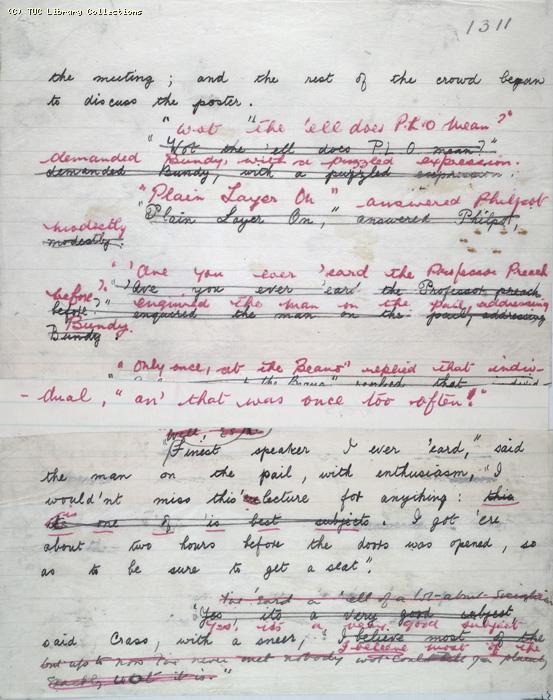 (C) TUC Library Collections
1311
the meeting ; and the rest of the crowd began
to discuss the poster .
"Wot "the 'ell does P.L.O mean?"
"Wot the 'ell does P L O mean?"
demanded Bundy, with a puzzled expression.
demanded Bundy, with a puzzled expression.
"Plain Layer On " answered Philpot
"Plain Layer On," answered Philpot,
modestly
modestly.
" 'Ave you ever 'eard the Professor Preach
before?" 'Ave you ever 'eard the Professor preach
enquired the man on the pail, addressing
before?" enquired the man on the pail, addressing
Bundy.
Bundy
" Only once, at the Beano" replied that indiv-
the Beano" replied that individ
- dual, " an' that was once too often!"
Well,
"Finest speaker I ever 'eard," said
the man on the pail, with enthusiasm, "I
would'nt miss this 'ere lecture for anything : this
is one of 'is best subjects. I got 'ere
about two hours before the doors was opened, so
as to be sure to get a seat".
'eard a 'ell of a lot about
"Yes, it's a very good subject
Yes, it's a very good subject
said Crass, with a sneer, "I believe most of the
I believe most of the
but up to now I've never met nobody wot could tell you plainly
exactly wot it is."